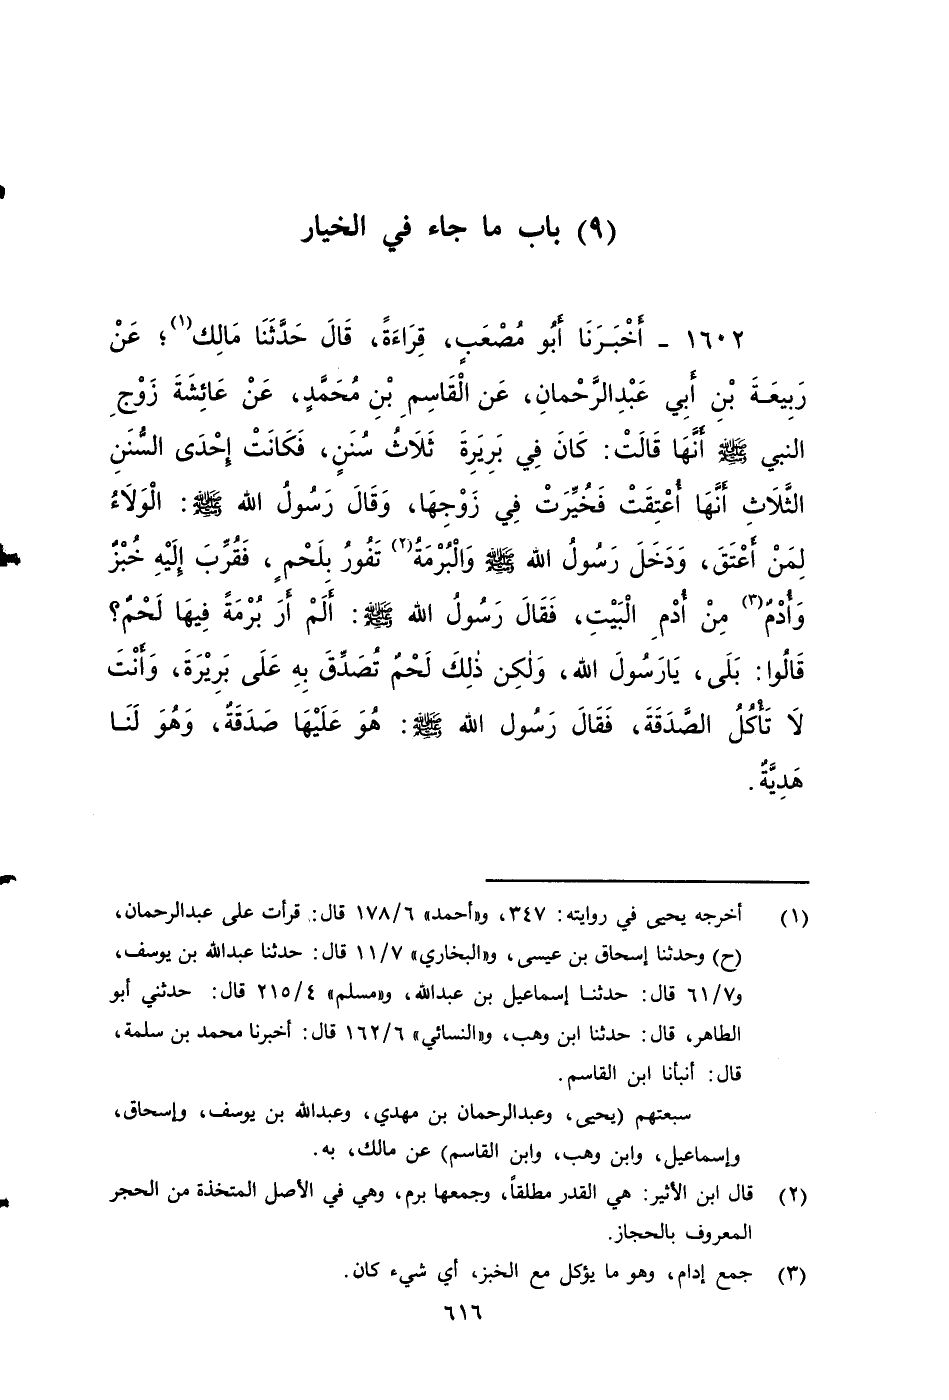 (٩) باب ما جاء في الخيار
١٦٠٢ - أَخْبَـرَنَا أَبُو مُصْعَبٍ، قِرَاءَةً، قَالَ حَدَّثَنَا مَالِك(١)؛ عَنْ
رَبِيعَـةَ بْنِ أَبِي عَبْدِالرَّحْمانِ، عَن الْقَاسِمِ بْنِ مُحَمَّدٍ، عَنْ عَائِشَةَ زَوْجِ
النبي ﷺ أَنَّهَا قَالَتْ: كَانَ فِي بَرِيَرةَ ثَلَاثُ سُنَنٍ، فَكَانَتْ إِحْدَى السُّنَنِ
الثَّلَاثِ أَنَّهَا أُعْتِقَتْ فَخُيِّرَتْ فِي زَوْجِهَا، وَقَالَ رَسُولُ الله ﷺ: الْوَلَاءُ
لِمَنْ أَعْتَقَ، وَدَخَلَ رَسُولُ الله ﷺ وَالْبُرْمَةُ(٢) تَفُورُ بِلَحْمٍ، فَقُرِّبَ إِلَيْهِ خُبْزٌ
وَأُدْمٌ(٣) مِنْ أُدْمِ الْبَيْتِ، فَقَالَ رَسُولُ الله ﷺ: أَلَمْ أَرَ بُرْمَةً فِيهَا لَحْمٌ؟
قَالُوا: بَلَى، يَارَسُولَ الله، وَلٰكِن ذٰلِكَ لَحْمٌ تُصَدِّقَ بِهِ عَلَى بَرِيْرَةَ، وَأَنْتَ
لَا تَأْكُلُ الصَّدَقَةَ، فَقَالَ رَسُول الله ﷺ: هُوَ عَلَيْهَا صَدَقَةٌ، وَهُوَ لَنَـا
هَدِيَّةٌ.
(١) أخرجه يحيى في روايته: ٣٤٧، و«أحمد» ١٧٨/٦ قال: قرأت على عبدالرحمان،
(ح) وحدثنا إسحاق بن عيسى، و«البخاري» ١١/٧ قال: حدثنا عبدالله بن يوسف،
و٦١/٧ قال: حدثنـا إسماعيل بن عبدالله، و«مسلم» ٢١٥/٤ قال: حدثني أبو
الطاهر، قال: حدثنا ابن وهب، و«النسائي» ١٦٢/٦ قال: أخبرنا محمد بن سلمة،
قال: أنبأنا ابن القاسم.
سبعتهم (يحيى، وعبدالرحمان بن مهدي، وعبدالله بن يوسف، وإسحاق،
وإسماعيل، وابن وهب، وابن القاسم) عن مالك، به.
(٢) قال ابن الأثير: هي القدر مطلقاً، وجمعها برم، وهي في الأصل المتخذة من الحجر
المعروف بالحجاز.
(٣) جمع إدام، وهو ما يؤكل مع الخبز، أي شيء كان.
٦١٦